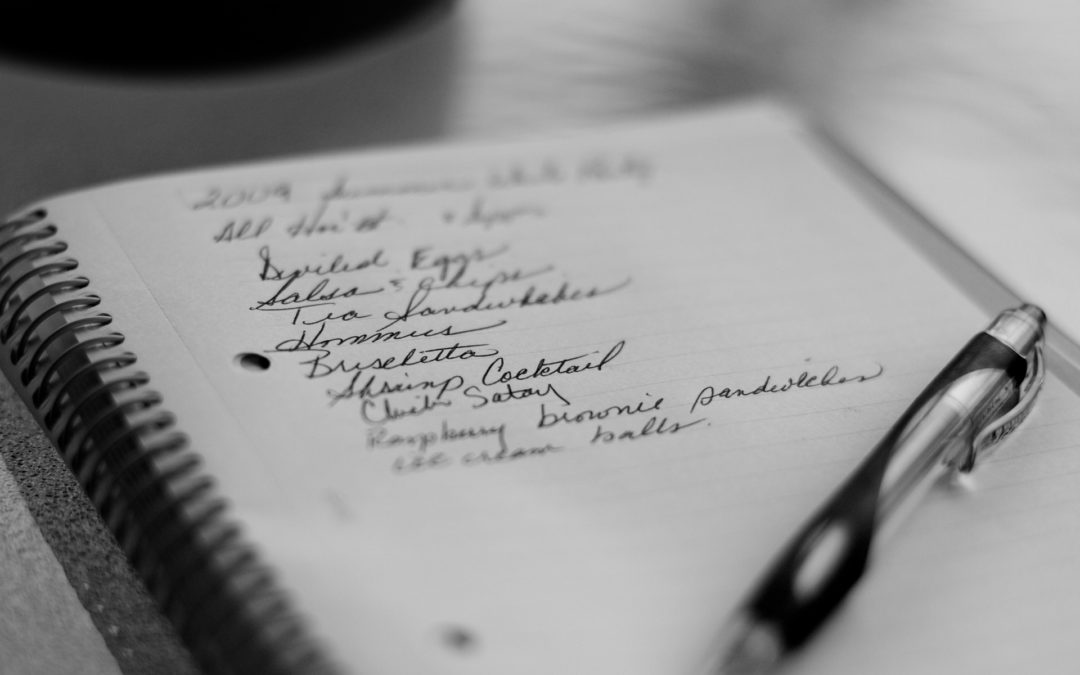 2009 Summer White Party
All Hors'
Deviled Eggs
Salsa & Chips
Tea Sandwhiches
Hommus
Bruschetta
Shrimp Cocktail
Satay
Raspberry brownie sandwiches
ice cream balls.